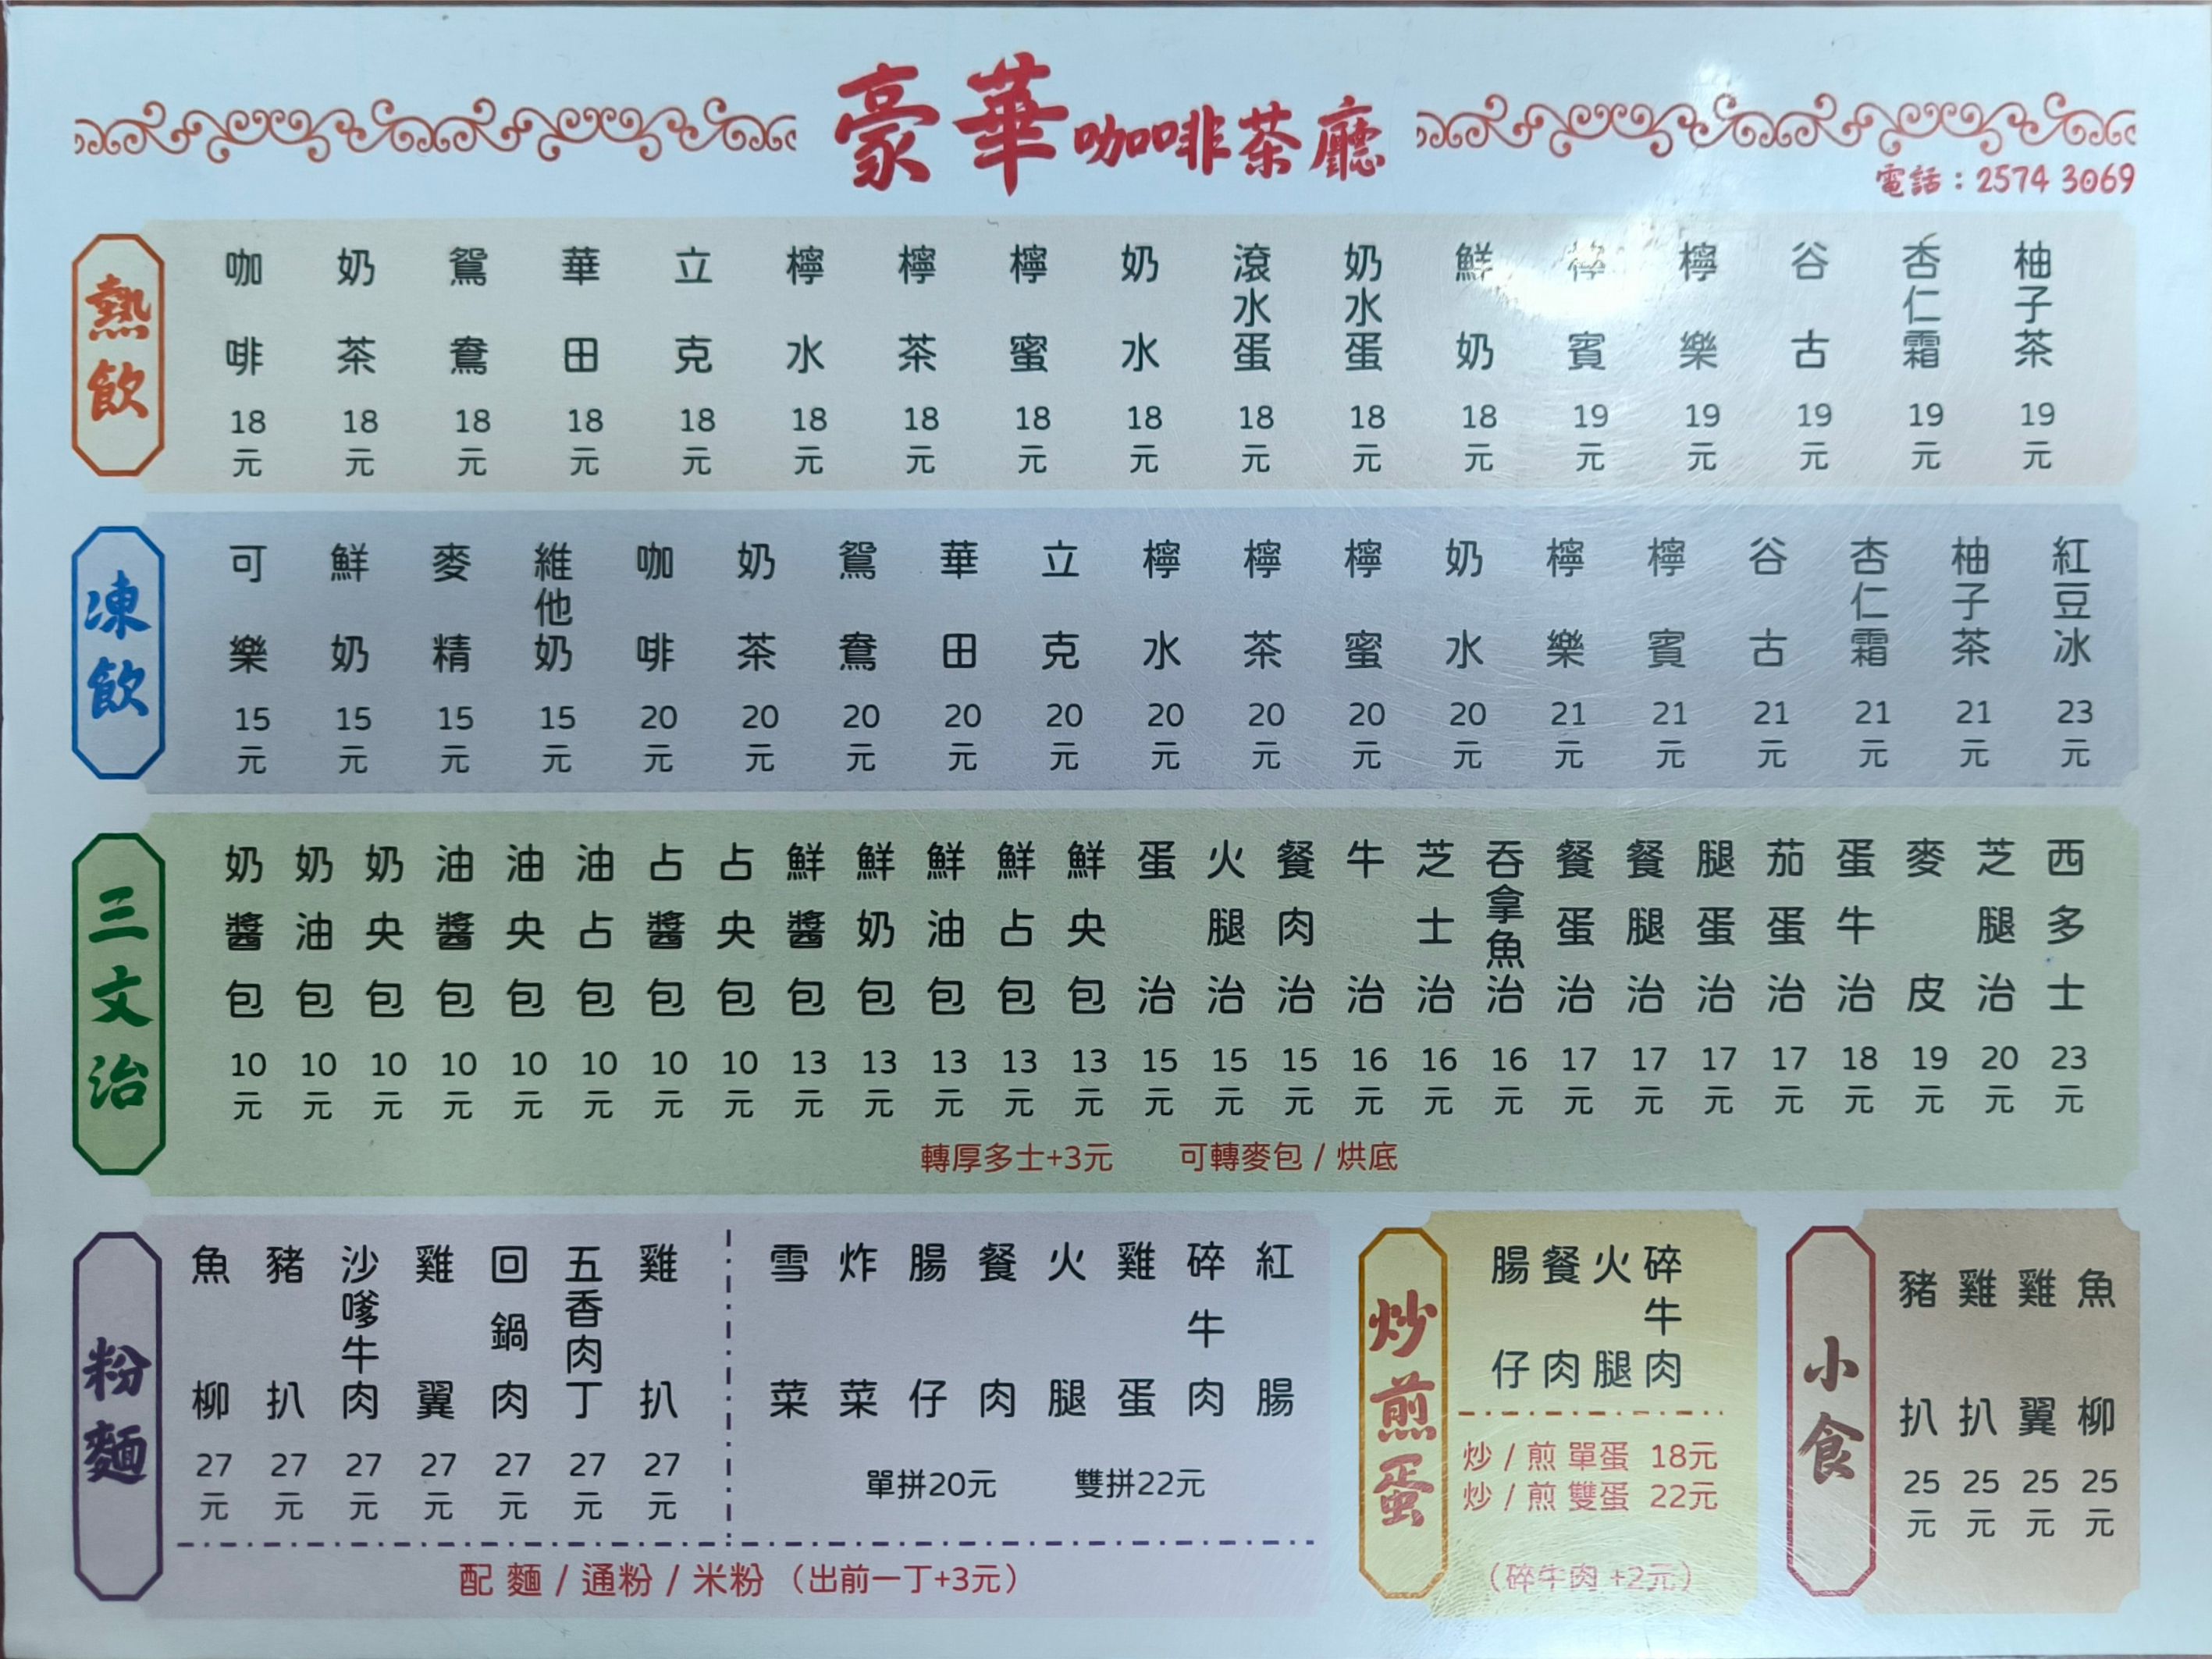 豪華咖啡茶廳
電話：2574 3069
熱飲
咖啡 18元
奶茶 18元
鴛鴦 18元
華田 18元
立克 18元
檸水 18元
檸茶 18元
檸蜜 18元
奶水 18元
滾水蛋 18元
奶水蛋 18元
鮮奶 18元
檸賓 19元
檸樂 19元
谷古 19元
杏仁霜 19元
柚子茶 19元
凍飲
可樂 15元
鮮奶 15元
麥精 15元
維他奶 15元
咖啡 20元
奶茶 20元
鴛鴦 20元
華田 20元
立克 20元
檸水 20元
檸茶 20元
檸蜜 20元
奶水 20元
檸樂 21元
檸賓 21元
谷古 21元
杏仁霜 21元
柚子茶 21元
紅豆冰 23元
三文治
奶醬包 10元
奶油包 10元
奶央包 10元
油醬包 10元
油央包 10元
油占包 10元
占醬包 10元
占央包 10元
鮮醬包 13元
鮮奶包 13元
鮮油包 13元
鮮占包 13元
鮮央包 13元
蛋治 15元
火腿治 15元
餐肉治 15元
牛治 16元
芝士治 16元
吞拿魚治 16元
餐蛋治 17元
餐腿治 17元
腿蛋治 17元
茄蛋治 17元
蛋牛治 18元
麥皮 19元
芝腿治 20元
西多士 23元
轉厚多士+3元 可轉麥包 / 烘底
粉麵
魚柳 27元
豬扒 27元
沙嗲牛肉 27元
雞翼 27元
回鍋肉 27元
五香肉丁 27元
雞扒 27元
雪菜
炸菜
腸仔
餐肉
火腿
雞蛋
碎牛肉
紅腸
單拼20元 雙拼22元
配 麵 / 通粉 / 米粉（出前一丁+3元）
炒煎蛋
腸仔
餐肉
火腿
碎牛肉
炒 / 煎 單蛋 18元
炒 / 煎 雙蛋 22元
（碎牛肉 +2元）
小食
豬扒 25元
雞扒 25元
雞翼 25元
魚柳 25元